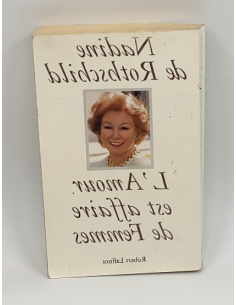 Nadine
de Rothschild
L'Amour
est affaire
de Femmes
Robert Laffont